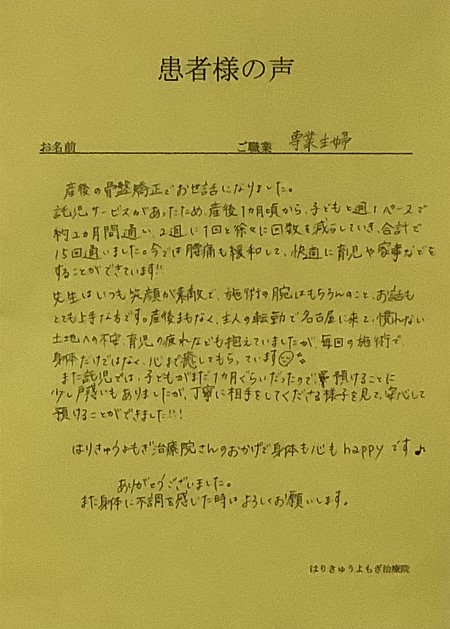 患者様の声
お名前 ご職業 専業主婦
産後の骨盤矯正でお世話になりました。
託児サービスがあったため、産後1カ月頃から、子どもと週1ペースで
約2カ月間通い、2週に1回と徐々に回数を減らしていき、合計で
15回通いました。今では腰痛も緩和して、快適に育児や家事などを
することができています!!
先生はいつも笑顔が素敵で、施術の腕はもちろんのこと、お話も
とても上手な方です。産後まもなく、主人の転勤で名古屋に来て、慣れない
土地への不安、育児の疲れなども抱えていましたが、毎回の施術で、
身体だけではなく、心まで癒してもらっています
また託児では、子どもがまだ1カ月ぐらいだったので預けることに
少し戸惑いもありましたが、丁寧に相手をしてくださる様子を見て、安心して
預けることができました!!!
はりきゅうよもぎ治療院さんのおかげで身体も心もhappyです♪
ありがとうございました。
また身体に不調を感じた時はよろしくお願いします。
はりきゅうよもぎ治療院